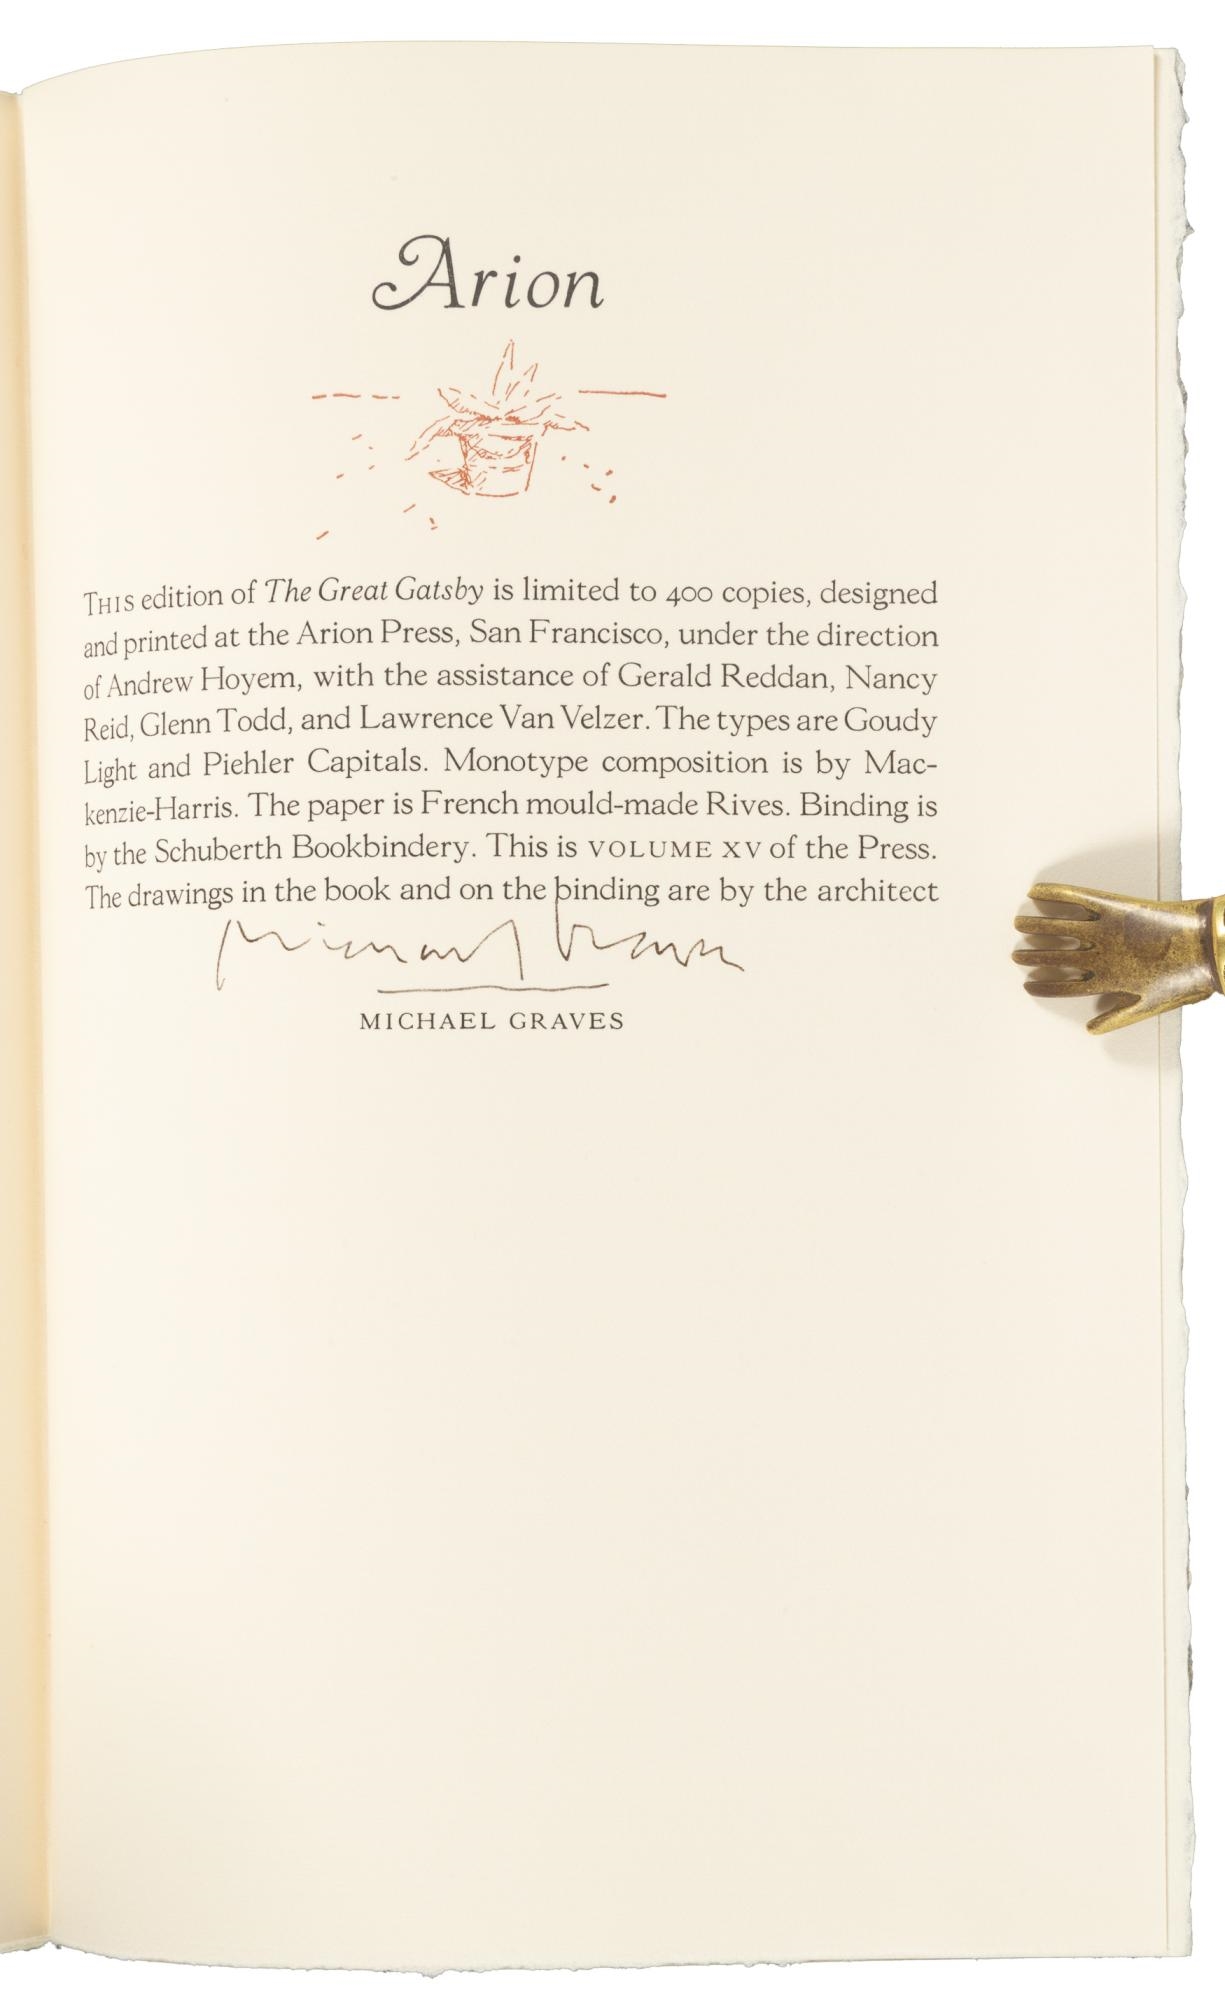 Arion
THIS edition of The Great Gatsby is limited to 400 copies, designed
and printed at the Arion Press, San Francisco, under the direction
of Andrew Hoyem, with the assistance of Gerald Reddan, Nancy
Reid, Glenn Todd, and Lawrence Van Velzer. The types are Goudy
Light and Piehler Capitals. Monotype composition is by Mac-
kenzie-Harris. The paper is French mould-made Rives. Binding is
by the Schuberth Bookbindery. This is VOLUME XV of the Press.
The drawings in the book and on the binding are by the architect
Michael Graves
MICHAEL GRAVES